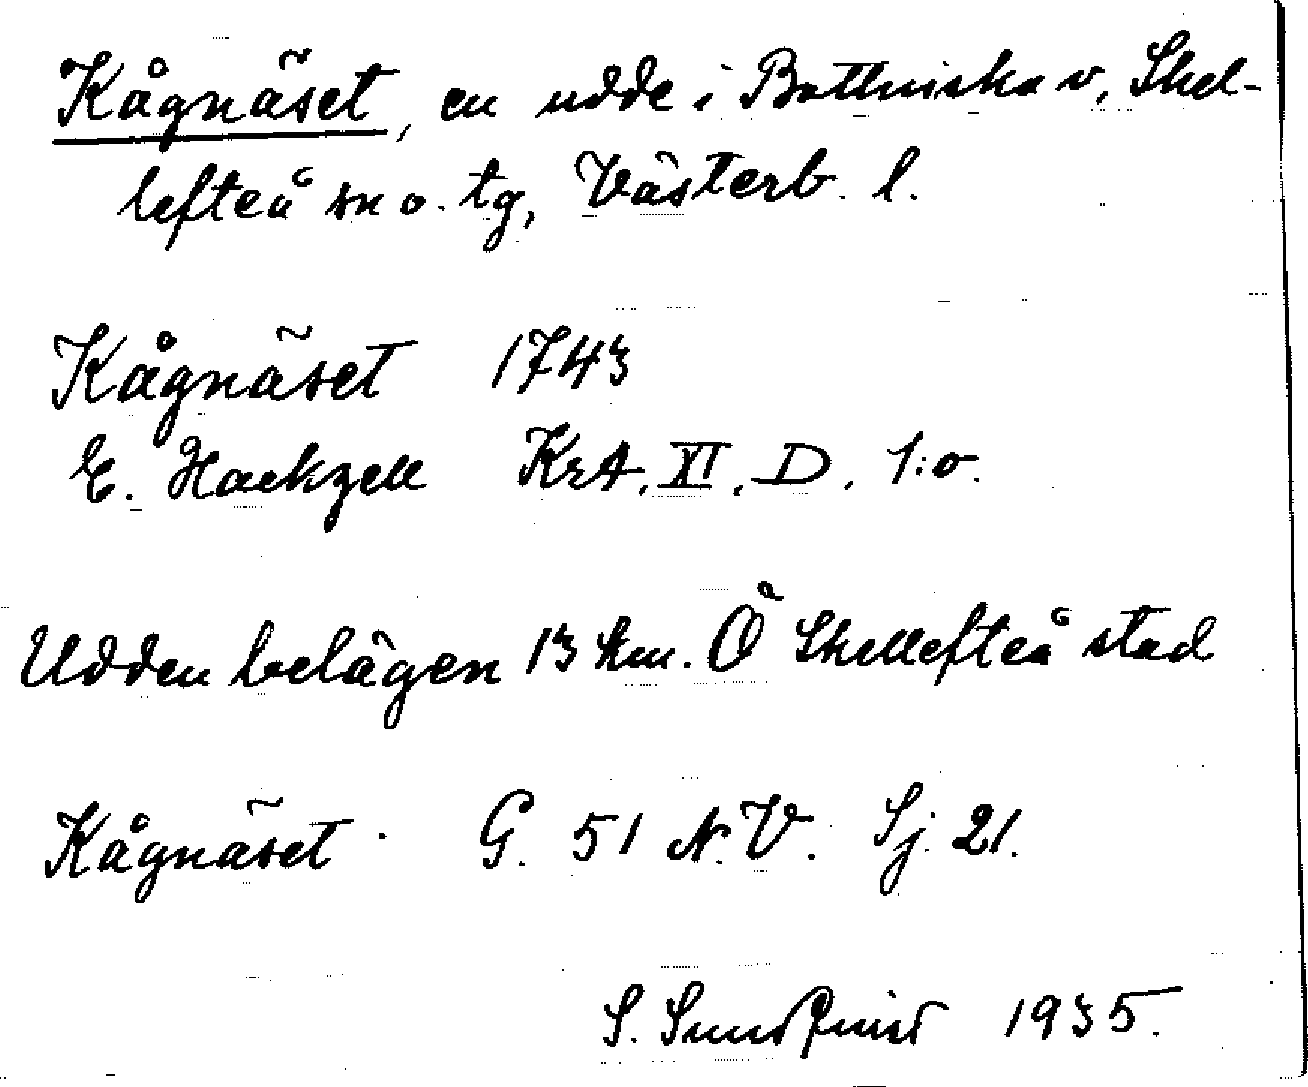 Kågnäset, en udde i Bottniska v, Skel-
lefteå sn o. tg, Västerb. l.
Kågnäset 1743
E. Hackzell KrA. XI. D. 1:o.
Udden belägen 13 km. O Skellefteå stad
Kågnäset. G. 51 N.V. Sj. 21.
S. Sundquist 1935.